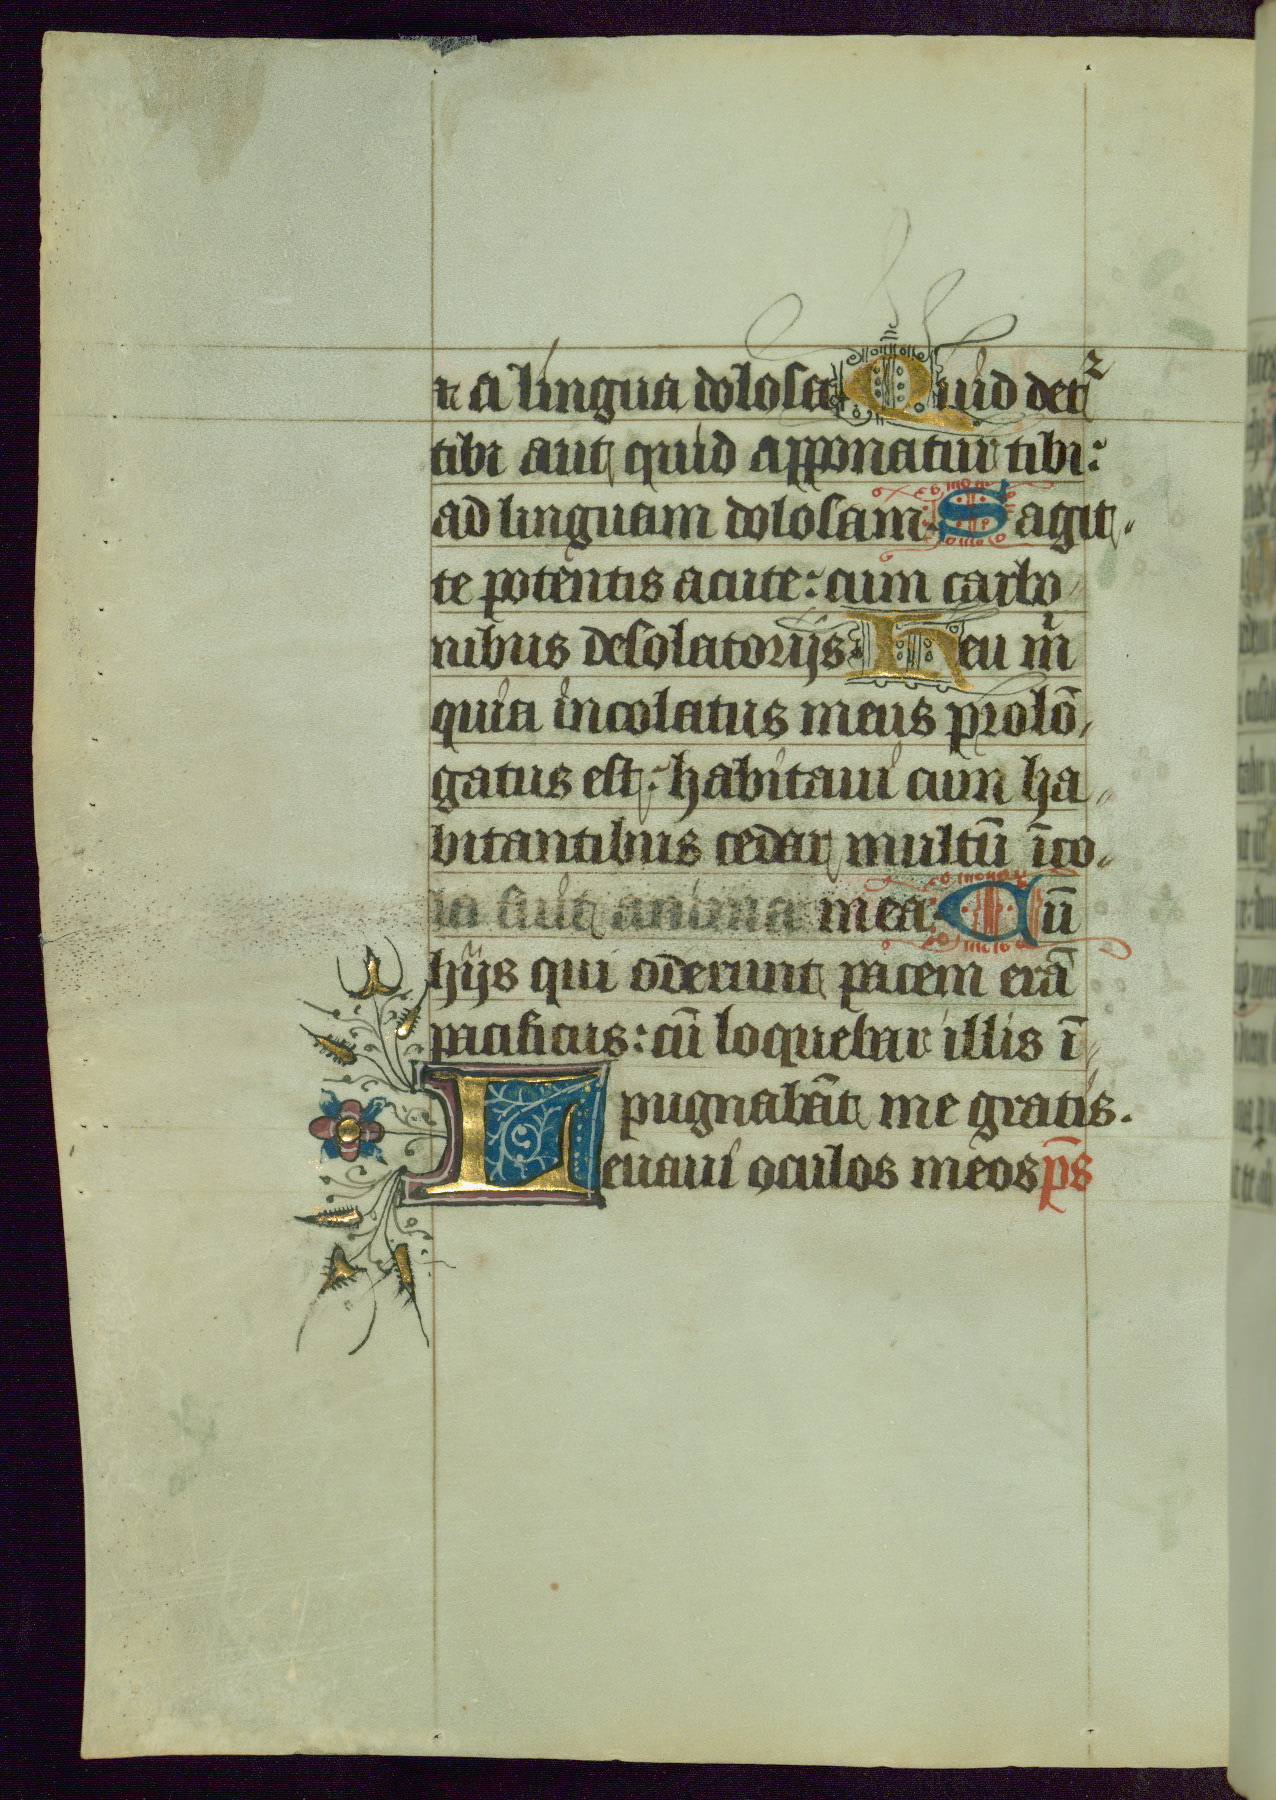 ⁊ a lingua dolosa Quid det᷑
tibi aut quid apponatur tibi:
ad linguam dolosam. Sagit-
te potentis acute: cum carbo-
nibus desolatorijs. Heu m̄
quia incolatus meus prolō-
gatus est: habitaui cum ha-
bitantibus cedar multū īco-
la fuit anima mea. Cū
hijs qui oderunt pacem erā
pacificus: cū loquebar illis ī-
pugnabāt me gratis.
Leuaui oculos meos p̄s